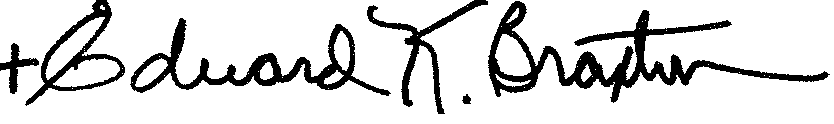 +Edward K. Braxton